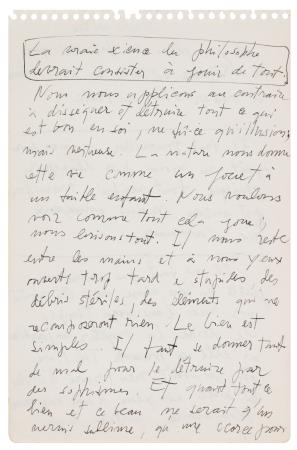 La vraie science du philosophe
devrait consister à jouir de tout.
Nous nous appliquons au contraire
à disséquer et détruire tout ce qui
est bon en soi, ne fût-ce qu'illusion,
mais vertueuse. La nature nous donne
cette vie comme un jouet à
un faible enfant. Nous voulons
voir comme tout cela joue;
nous brisons tout. Il nous reste
entre les mains et à nous yeux
ouverts trop tard e stupides, des
débris stériles, des éléments qui ne
recomposeront rien. Le bien est
simples. Il faut se donner tant
de mal pour le détruire par
des sophismes. Et quand tout ce
bien et ce beau ne serait q'un
vernis sublime, qu'une écorce pour